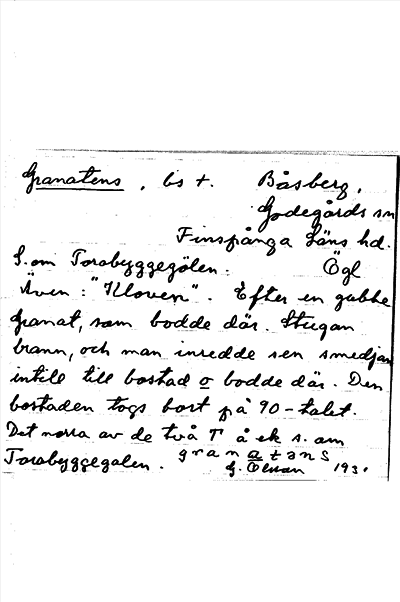 Granatens, bs t. Båsberg,
Godegårds sn
Finspånga Läns hd.
S. om Torabyggegölen. Ögl
Även: "Kloven". Efter en gubbe
Granat, som bodde där. Stugan
brann, och man inredde sen smedjan
intill till bostad o bodde där. Den
bostaden togs bort på 90-talet.
Det norra av de två T å ek s. om
Torabyggegalen. granatəns
G. Olsson 1930